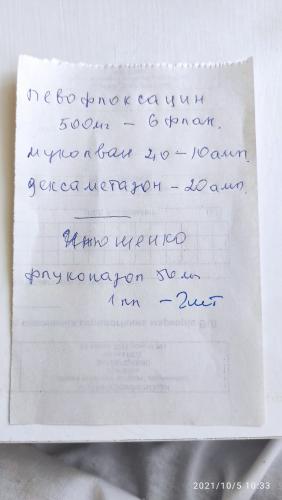 Левофлоксацин
500мг – 6 флак.
Муколван 2,0 – 10 амп.
Дексаметазон – 20 амп.
флуконазол
– 2шт
2021/10/5 10:33